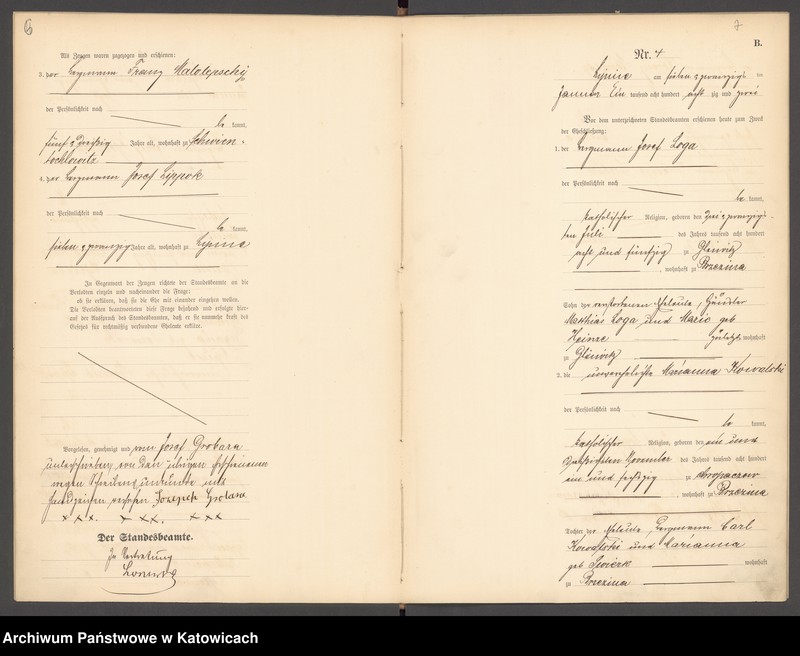 6
Als Zeugen waren zugezogen und erschienen:
3. der Bergmann Franz Malolepschy
der Persönlichkeit nach
be kannt,
fünf & dreißig Jahre alt, wohnhaft zu Schwien-
tochlowitz
4. der Bergmann Josef Lippok
der Persönlichkeit nach
be kannt,
sieben & zwanzig Jahre alt, wohnhaft zu Lipine
In Gegenwart der Zeugen richtete der Standesbeamte an die
Verlobten einzeln und nacheinander die Frage:
ob sie erklären, daß sie die Ehe mit einander eingehen wollen.
Die Verlobten beantworteten diese Frage bejahend und erfolgte hier-
auf der Ausspruch des Standesbeamten, daß er sie nunmehr kraft des
Gesetzes für rechtmäßig verbundene Eheleute erkläre.
Vorgelesen, genehmigt und von Josef Grobara
unterschrieben, von den übrigen Erschienenen
wegen Schreibensunkunde mit
Handzeichen versehen Joseph Grobara
+++. +++. +++
Der Standesbeamte.
In Vertretung
7
B.
Nr. 4
Lipine am sieben & zwanzigsten
Januar Ein tausend acht hundert acht zig und zwei
Vor dem unterzeichneten Standesbeamten erschienen heute zum Zweck
der Eheschließung:
1. der Bergmann Josef Loga
der Persönlichkeit nach
be kannt,
katholischer Religion, geboren den drei & zwanzig-
sten Juli des Jahres tausend acht hundert
acht und fünfzig zu Gleiwitz
, wohnhaft zu Brzezina
Sohn der verstorbenen Eheleute, Häusler
Matthias Loga und Marie geb
Heinze zuletzt wohnhaft
zu Gleiwitz
2. die unverehelichte Marianna Kowalski
der Persönlichkeit nach
be kannt,
katholischer Religion, geboren den ein und
dreißigsten November des Jahres tausend acht hundert
ein und sechzig zu
, wohnhaft zu Brzezina
Tochter der Eheleute, Bergmann Carl
Kowalski und Marianna
geb wohnhaft
zu Brzezina
Archiwum Państwowe w Katowicach